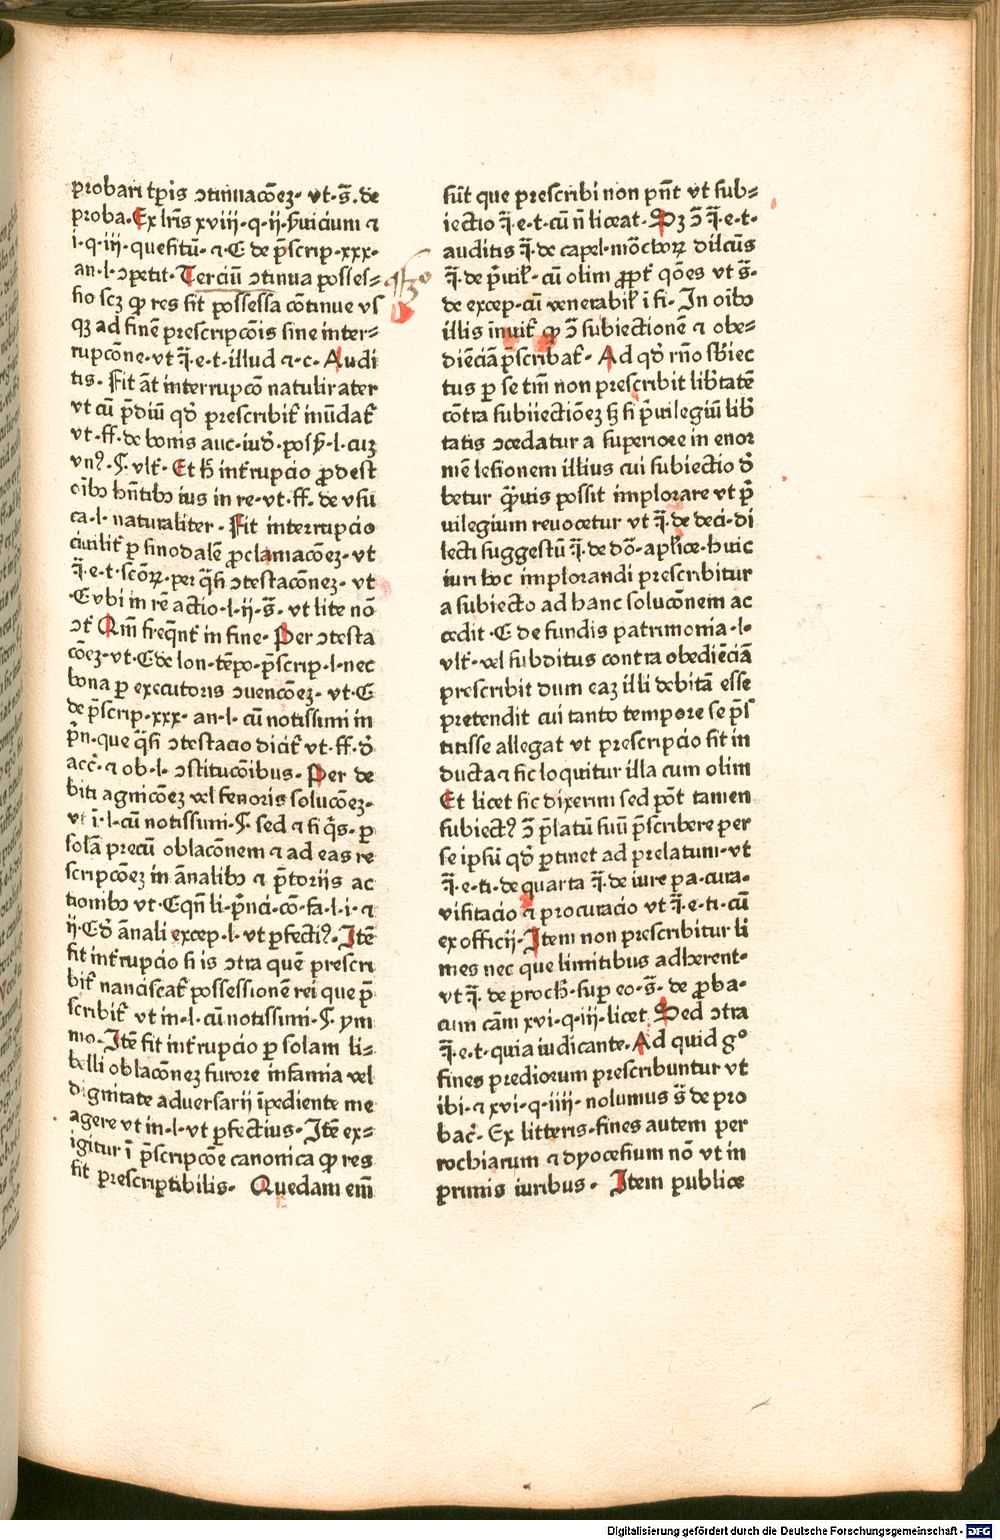 probari tꝑis ↄtinuacōeꝫ· vt·s̄· de
proba·Ex lr̄is xviii·q·ii·ſvicium ⁊
i·q·iii·queſitū·⁊·C de p̄scrip·xxx·
an·l·ↄpetit·Terciū ↄtinua posses⸗
sio scꝫ ꝙ res sit possessa cōtinue vs
qꝫ ad finē prescripcōis sine inter⸗
rupcōne·vt q̄·e·t·illud ⁊·c· Audi
tis· Fit āt interrupcō natulirater
vt cū p̄diū qd̓ prescribit̄ inūdat̄
vt·ff·de bonis auc·iud̓·posſ̄·l·cuꝫ
vnꝰ·¶·vlt̄· Et h̄ int̄rupcio ꝓdest
oībꝰ hn̄tibꝰ ius in re·vt·ff· de vsu
ca·l·naturaliter· Fit interrupcio
ciuilit̄ ꝑ sinodalē ꝓclamacōeꝫ·vt
q̄·e·t·scōꝝ·per q̄si ↄtestacōneꝫ· vt
·C vbi in rē actio·l·ii·s̄· vt lite nō
ↄt̄ Qm̄ freq̄nt̄ in fine· Per ↄtesta
cōeꝫ·vt·C de lon·tēpo·p̄scrip·l·nec
bona ꝑ executoris ↄuencōeꝫ· vt·C
de p̄scrip·xxx· an·l· cū notissimi in
p̄n·que q̄si ↄtestacio dicit̄ vt·ff·d̓
acc̄·⁊ ob·l· ↄstitucōibus· Per de
biti agnicōeꝫ vel fenoris solucōeꝫ·
vt ī·l·cū notissimi·¶·sed ⁊ si q̄s· ꝑ
solā precū oblacōnem ⁊ ad eas re
scripcōeꝫ in ānalibꝰ ⁊ p̄toriis ac
tionibꝰ vt·C qn̄ li·p̄nci·cō·fa·l·i·⁊
ii·C d̓ ānali excep·l·vt ꝑfectiꝰ·Itē
fit int̄rupcio si is ↄtra quē prescri
bit̄ nanciscat̄ possessionē rei que p̄
scribit̄ vt in·l·cū notissimi·¶·ym
mo·Itē fit int̄rupcio ꝑ solam li⸗
belli oblacōneꝫ furore infamia vel
dignitate adversarii īpediente me
agere vt in·l·vt ꝑfectius·Itē ex⸗
igitur ī p̄scripcōe canonica ꝙ res
sit prescriptibilis· Quedam em̄
sūt que prescribi non pn̄t vt sub⸗
iectio q̄·e·t·cū n̄ liceat·Pꝫ ↄ̄ q̄·e·t·
auditis q̄·de capel·mōctoꝝ dilcūs
q̄·de p̄uil̄·cū olim ꝓpt̄ qōes vt s̄·
de excep·cū venerabil̄ i fi·In oībꝰ
illis īnuit̄ ꝙ ↄ̄ subiectionē ⁊ obe⸗
diēciā p̄scribat̄· Ad qd̓ rn̄o sb̄iec
tus ꝑ se tm̄ non prescribit lib̄tatē
cōtra subiiectiōeꝫ ꝫ si p̄uilegiū lib̄
tatis ↄcedatur a superiore in enor
mē lesionem illius cui subiectio d̓
betur q̄uis possit implorare vt p̄
uilegium reuocetur vt q̄·de deci·di
lecti suggestū q̄·de dō·apl̄ice·huic
iuri hoc implorandi prescribitur
a subiecto ad hanc solucōnem ac
cedit·C de fundis patrimonia·l·
vlt̄·vel subditus contra obediēciā
prescribit dum eaꝫ illi debitā esse
pretendit cui tanto tempore se p̄s
titisse allegat vt prescripcio sit in
ducta ⁊ sic loquitur illa cum olim
Et licet sic dixerim sed pōt tamen
subiectꝰ ↄ̄ p̄latū suū p̄scribere per
se ipsū qd̓ ꝑtinet ad prelatum·vt
q̄·e·ti·de quarta q̄·de iure pa·cura·
visitacio ⁊ procuracio vt q̄·e·ti·cū
ex officii·Item non prescribitur li
mes nec que limitibus adherent·
vt q̄· de proch̄·suꝑ eo·s̄· de ꝓba·
cum cām xvi·q·iii·licet Sed ↄtra
q̄·e·t·quia iudicante·Ad quid gº
fines prediorum prescribuntur vt
ibi·⁊ xvi·q·iiii·nolumus s̄ de pro
bac̄·Ex litteris·fines autem per
rochiarum ⁊ dyocesium nō vt in
primis iuribus· Item publice
Digitalisierung gefördert durch die Deutsche Forschungsgemeinschaft - DFG